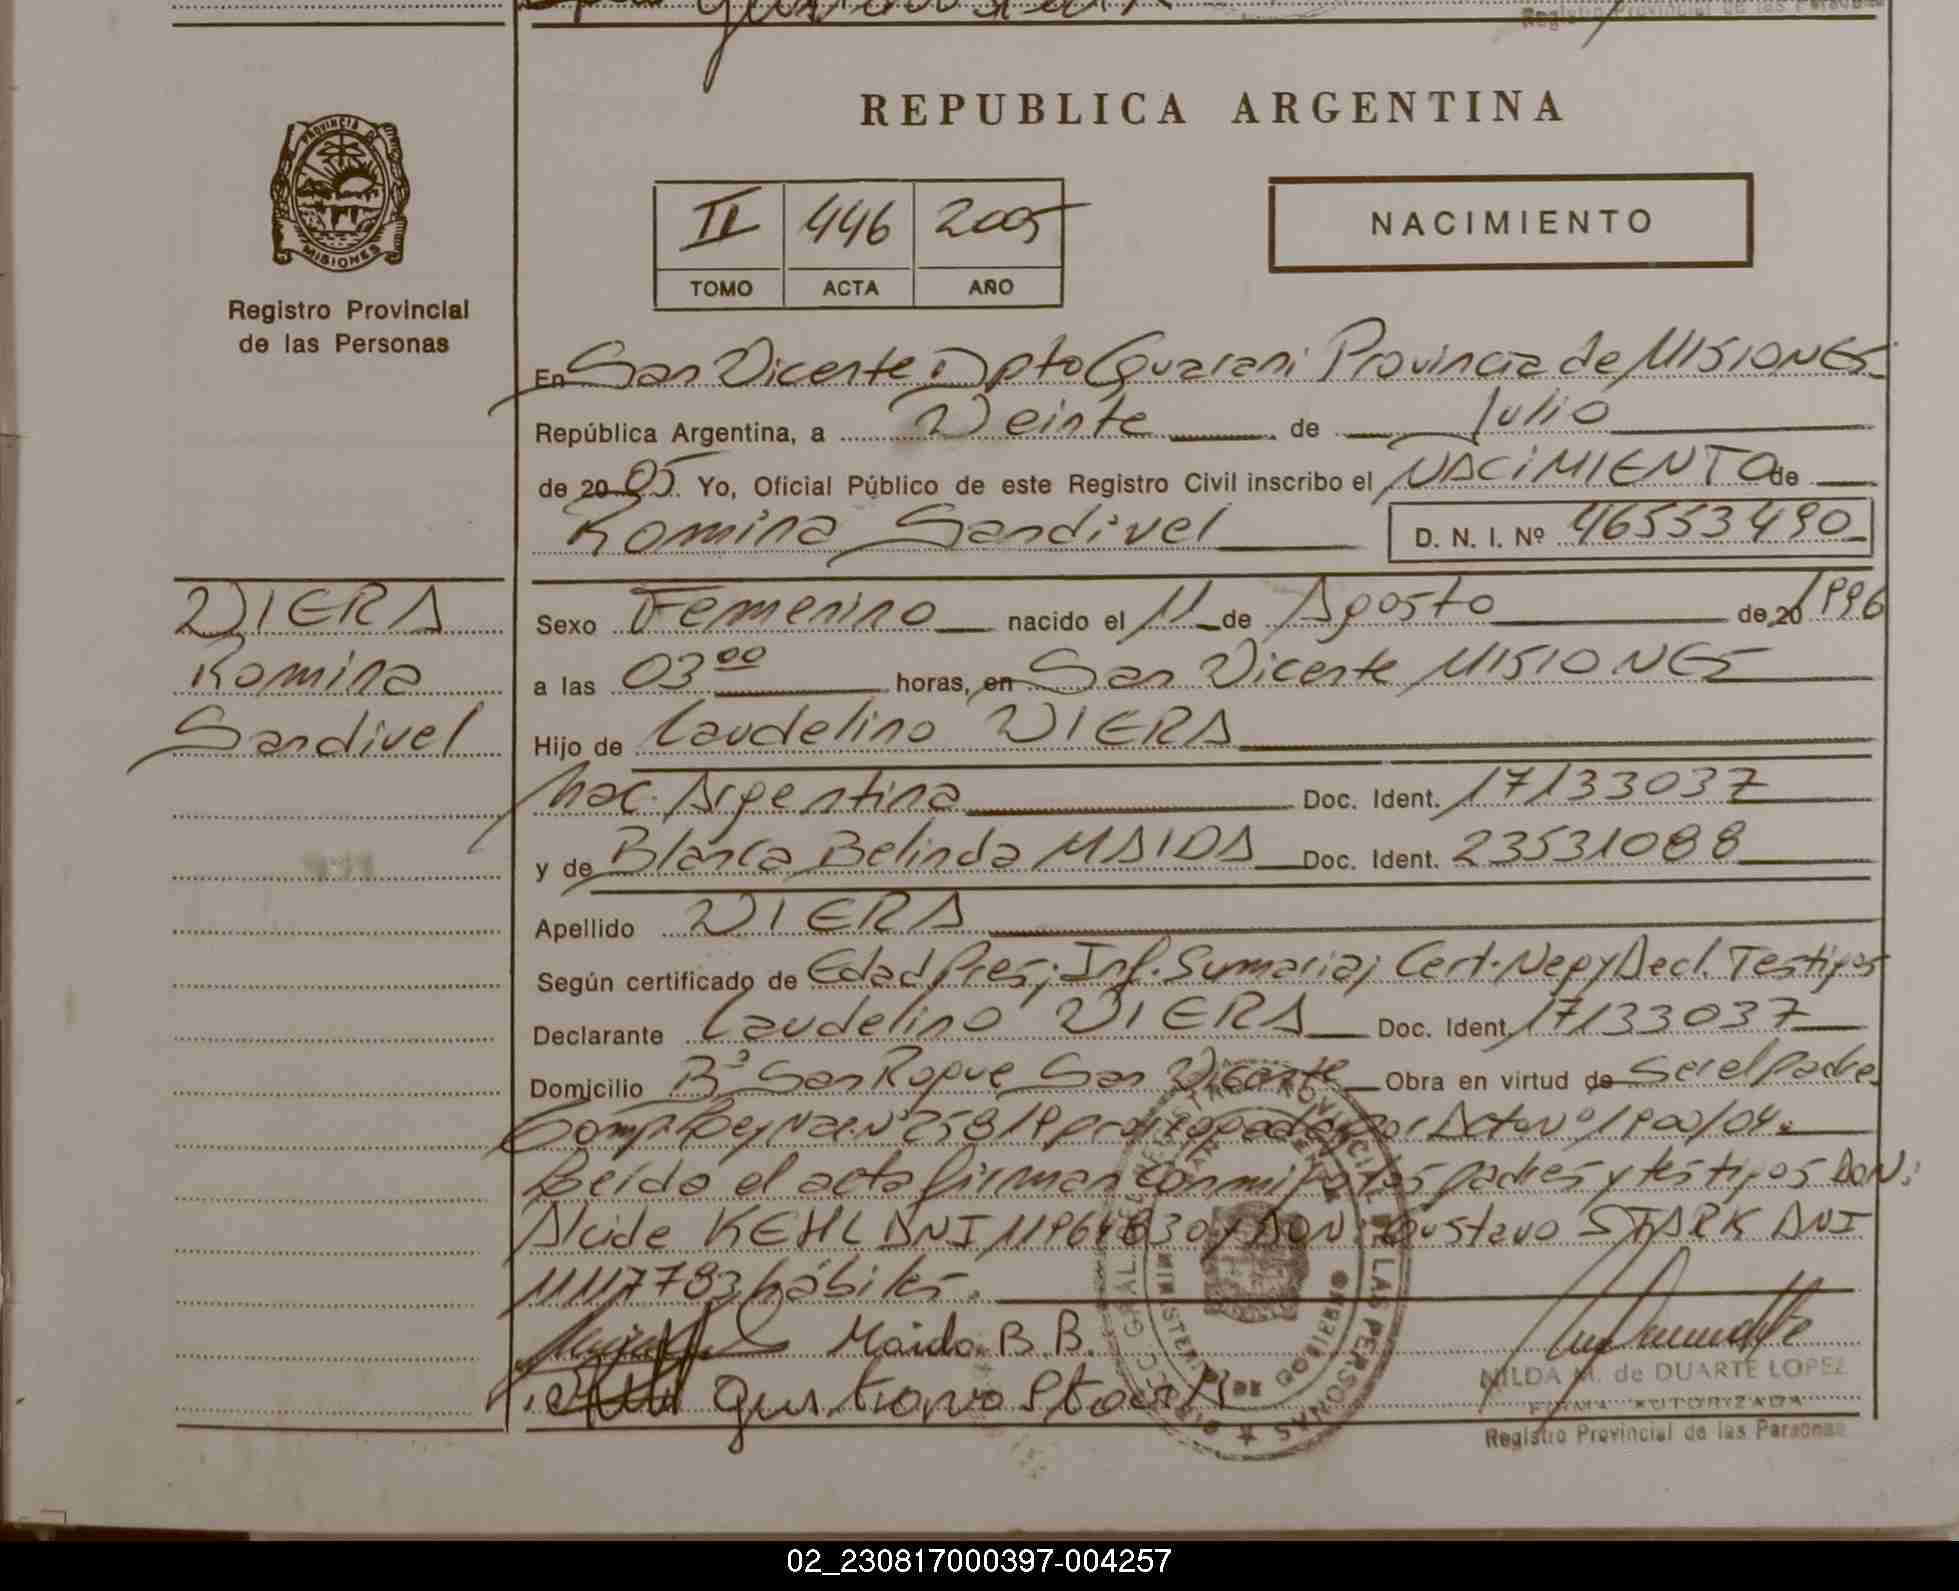 REPUBLICA ARGENTINA
PROVINCIA DE
MISIONES
Registro Provincial
de las Personas
II 446 2005
TOMO ACTA AÑO
NACIMIENTO
En San Vicente Dpto Guarani Provincia de MISIONES
República Argentina, a Veinte de Julio
de 2005 Yo, Oficial Público de este Registro Civil inscribo el NACIMIENTO de
Romina Sandivel D. N. I. Nº 46553490
VIERA
Romina
Sandivel
Sexo Femenino nacido el 11 de Agosto de 20 1996
a las 03 00 horas, en San Vicente MISIONES
Hijo de Laudelino VIERA
Nac. Argentina Doc. Ident. 17133037
y de Blanca Belinda MAIDA Doc. Ident. 23531088
Apellido VIERA
Según certificado de Edad Pres; Inf. Sumaria; Cert. Neg y Decl. Testigos
Declarante Laudelino VIERA Doc. Ident. 17133037
Domicilio Bº San Roque San Vicente Obra en virtud de Ser el padre
Comp. Ley Nac. Nº 25819 prorrogada por Dcto Nº 1900/04.
Leída el acta firman conmigo los padres y testigos DON:
Alcide KEHL DNI 11964830 y DON: Gustavo STARK DNI
11117783 hábiles.
Maida B. B.
Gustavo Stark
NILDA M. de DUARTE LOPEZ
FIRMA AUTORIZADA
Registro Provincial de las Personas
02_230817000397-004257